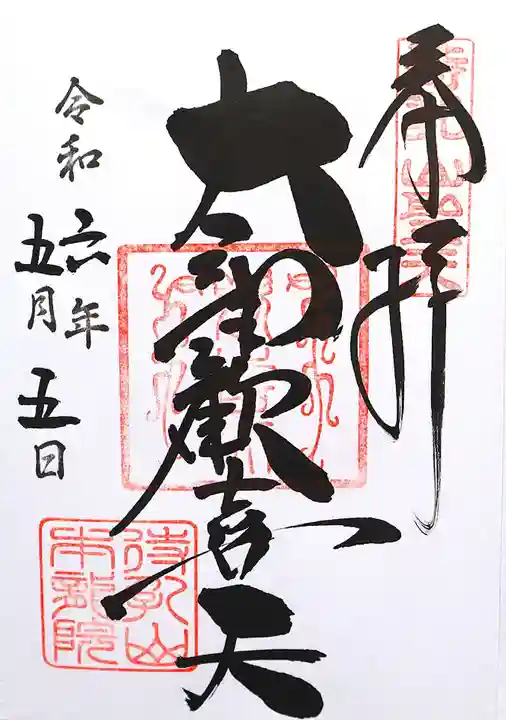 奉拝
待乳山聖天
大聖歓喜天
令和六年
五月五日
待乳山
本龍院